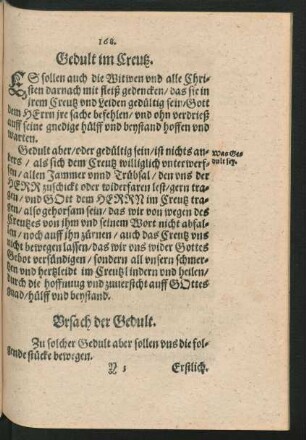 168.
Gedult im Creutz.
ES sollen auch die Witwen vnd alle Chri-
sten darnach mit fleiß gedencken/das sie in
irem Creutz vnd Leiden gedültig sein/Gott
dem HErrn jre sache befehlen/vnd ohn verdrieß
auff seine gnedige hülff vnd beystand hoffen vnd
warten.
Gedult aber/oder gedültig sein/ist nichts an-
ders/als sich dem Creutz williglich vnterwerf-
fen/allen Jammer vnnd Trübsal/den vns der
HERR zuschickt oder widerfaren lest/gern tra-
gen/vnd GOtt dem HERRN im Creutz tra-
gen/also gehorsam sein/das wir von wegen des
Creutzes von ihm vnd seinem Wort nicht abfal-
len/noch auff ihn zürnen/auch das Creutz vns
nicht bewegen lassen/das wir vns wider Gottes
Gebot versündigen/sondern all vnsern schmer-
tzen vnd hertzleidt im Creutz lindern vnd heilen/
durch die hoffnung vnd zuuersicht auff GOttes
gnad/hülff vnd beystand.
Was Ge-
dult sey.
Vrsach der Gedult.
Zu solcher Gedult aber sollen vns die fol-
gende stücke bewegen.
Erstlich.